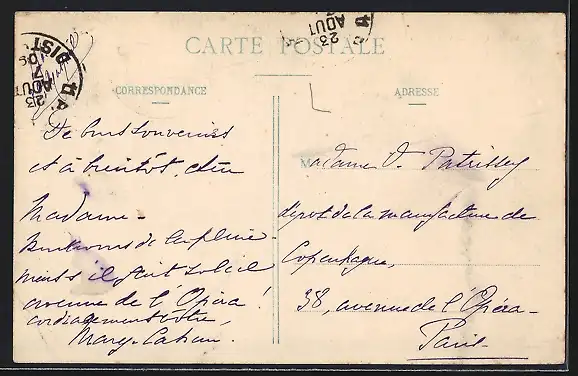 CARTE POSTALE
CORRESPONDANCE
De bons souvenirs
et à bientôt, chère
Madame -
de la pluie -
il fait soleil
avenue de l'Opéra !
cordialement vôtre,
Mary Cahan.
ADRESSE
Madame V. Patrissey
dépot de la manufacture de
Copenhague,
38, avenue de l'Opéra -
Paris -
23
AOUT
DIST
7
23
AOUT
11